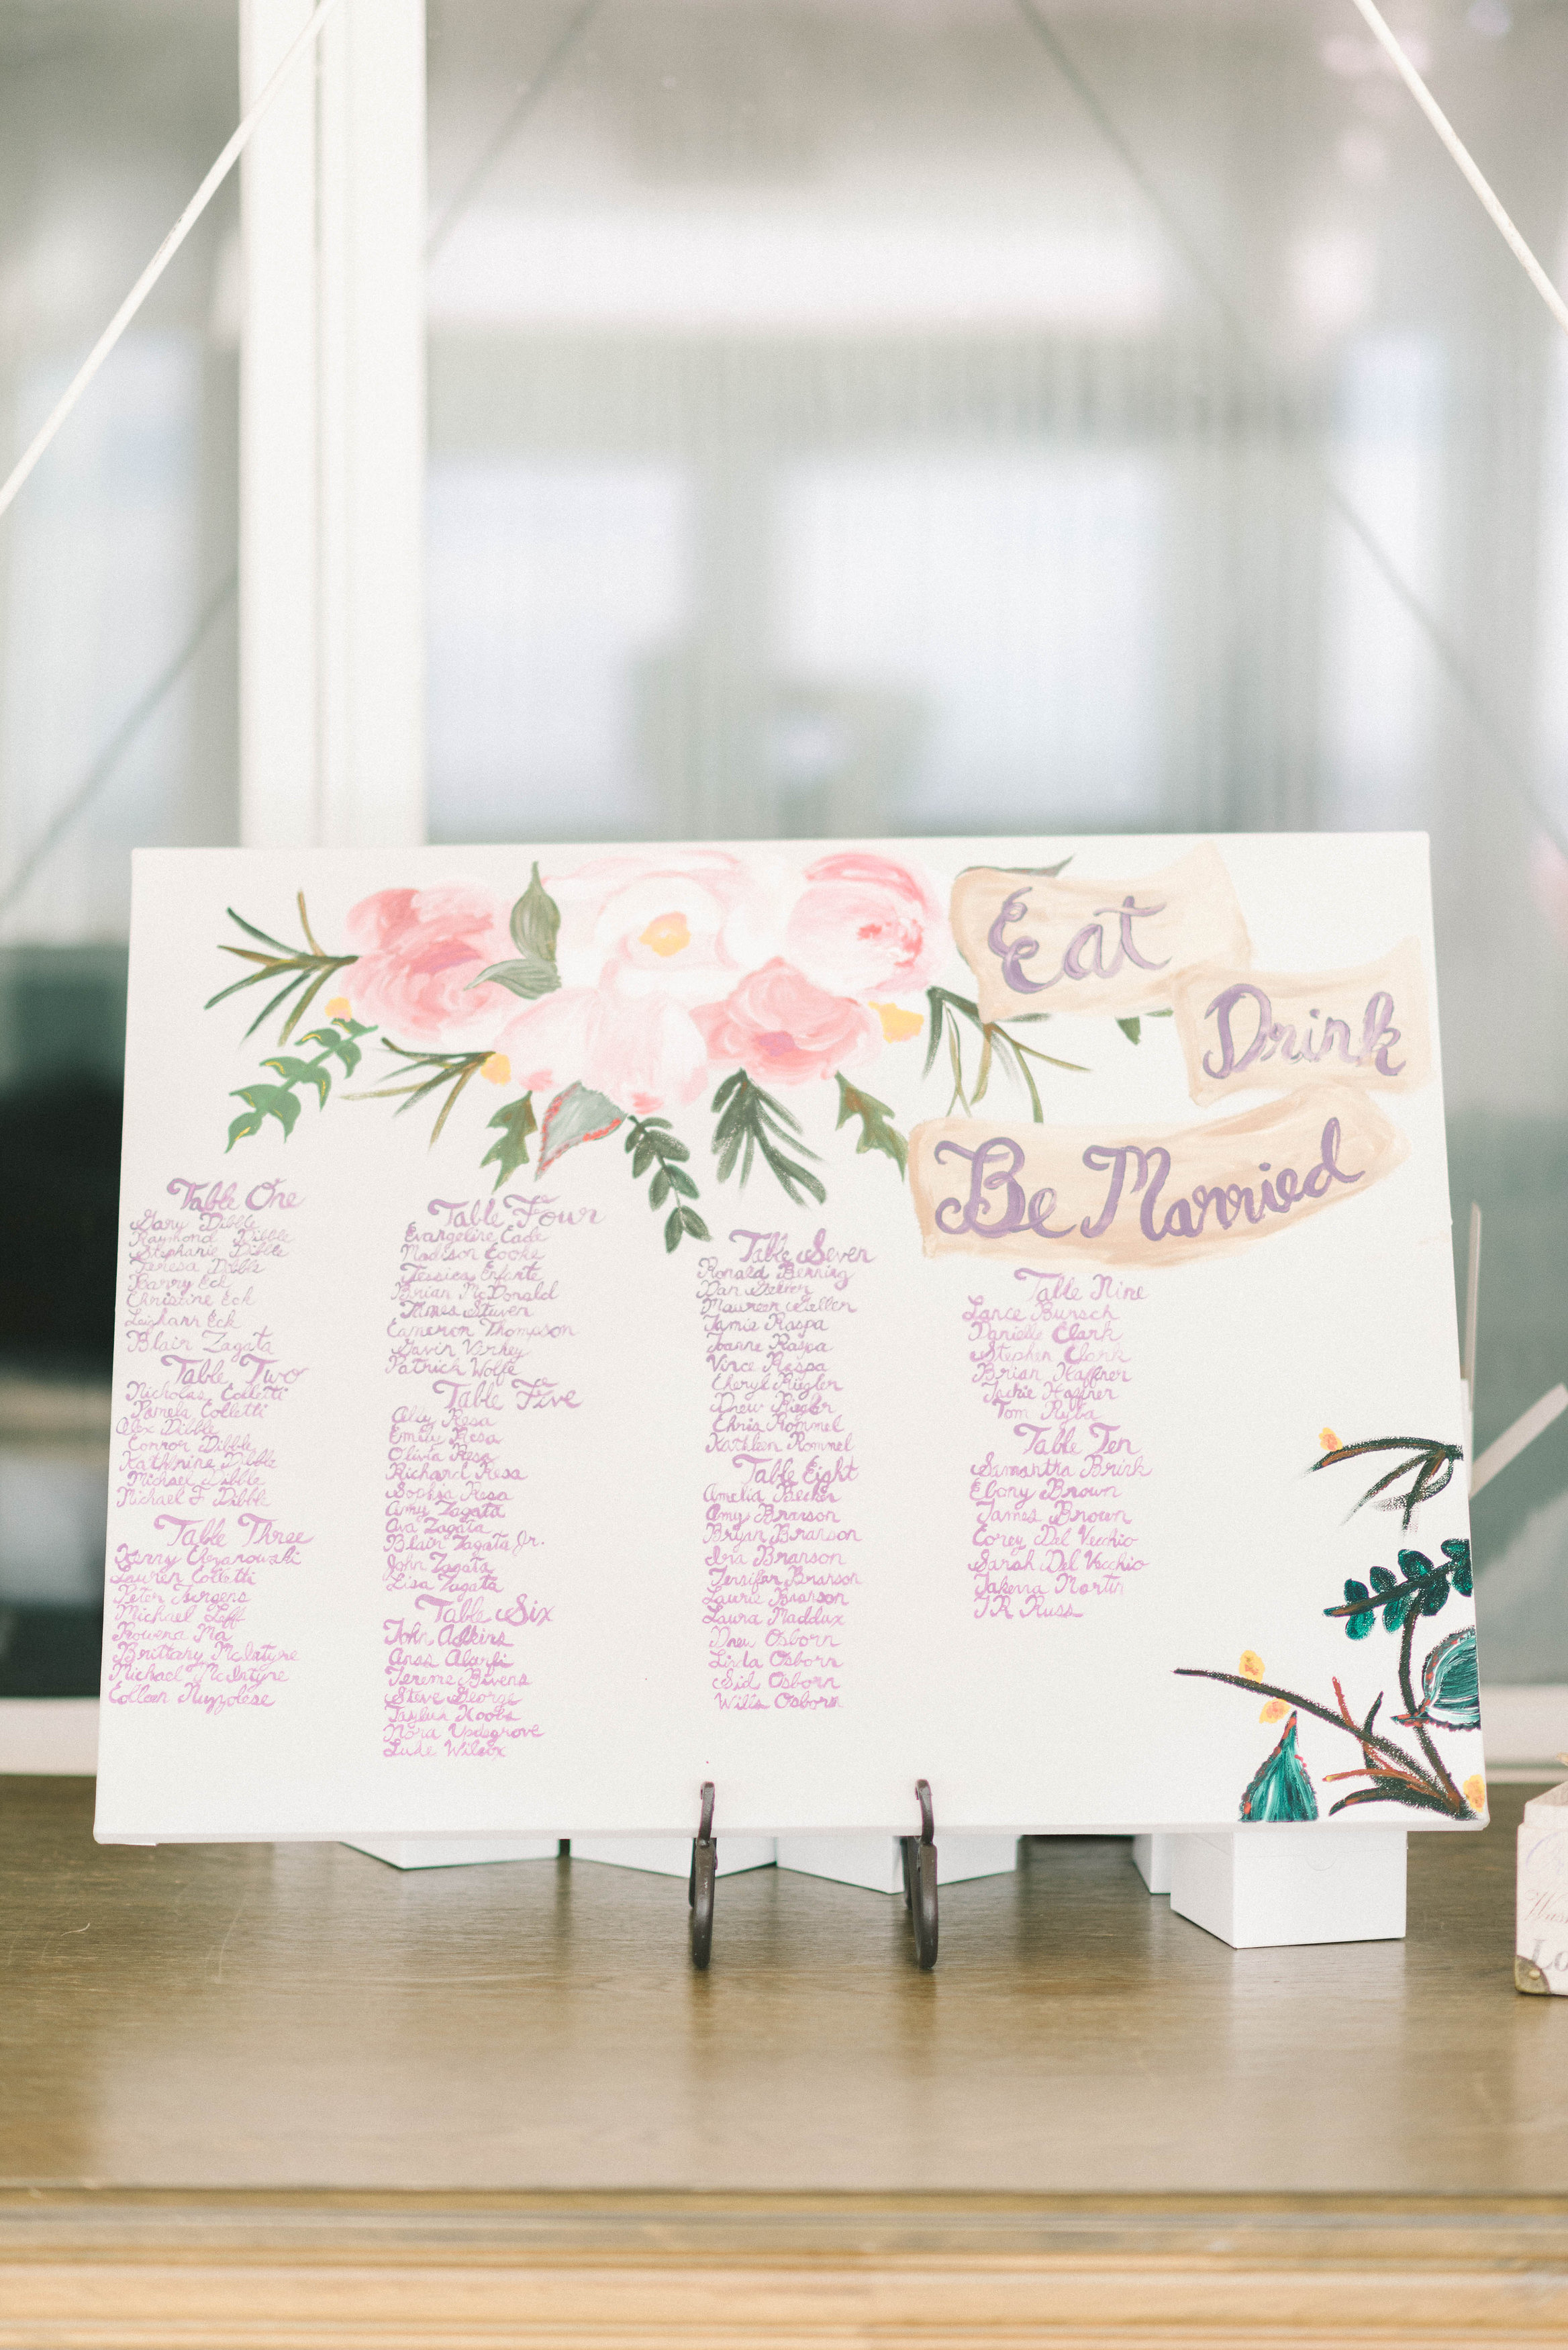 Eat
Drink
Be Married
Table One
Gary Dibble
Raymond Dibble
Stephanie Dibble
Teresa Dibble
Barry Eck
Christine Eck
Leighann Eck
Blair Zagata
Table Two
Nicholas Colletti
Pamela Colletti
Alex Dibble
Connor Dibble
Katherine Dibble
Michael Dibble
Michael F Dibble
Table Three
Lauren Colletti
Peter Jurgens
Michael Leff
Rowena Ma
Brittany McIntyre
Michael McIntyre
Colleen Nuzzolese
Table Four
Evangeline Cade
Madison Cooke
Jessica Infante
Brian McDonald
James Stuven
Cameron Thompson
Gavin Verhey
Patrick Wolfe
Table Five
Ally Resa
Emily Resa
Olivia Resa
Richard Resa
Sophia Resa
Amy Zagata
Ava Zagata
Blair Zagata Jr.
John Zagata
Lisa Zagata
Table Six
John Adkins
Anas
Jereme Bivens
Steve George
Hoobs
Nora Updegrove
Luke Wilcox
Table Seven
Ronald Benning
Dan
Maureen
Jamie Raspa
Joanne Raspa
Vince Raspa
Cheryl Riegler
Drew Riegler
Chris Rommel
Kathleen Rommel
Table Eight
Amelia Becker
Amy Branson
Bryan Branson
Ira Branson
Jennifer Branson
Laurie Branson
Laura Maddux
Drew Osborn
Linda Osborn
Sid Osborn
Wills Osborn
Table Nine
Lance Bunsch
Danielle Clark
Stephen Clark
Brian Haffner
Jackie Haffner
Tom Ryba
Table Ten
Samantha Brink
Ebony Brown
James Brown
Corey Del Vecchio
Sarah Del Vecchio
Takema Martin
JR Russ